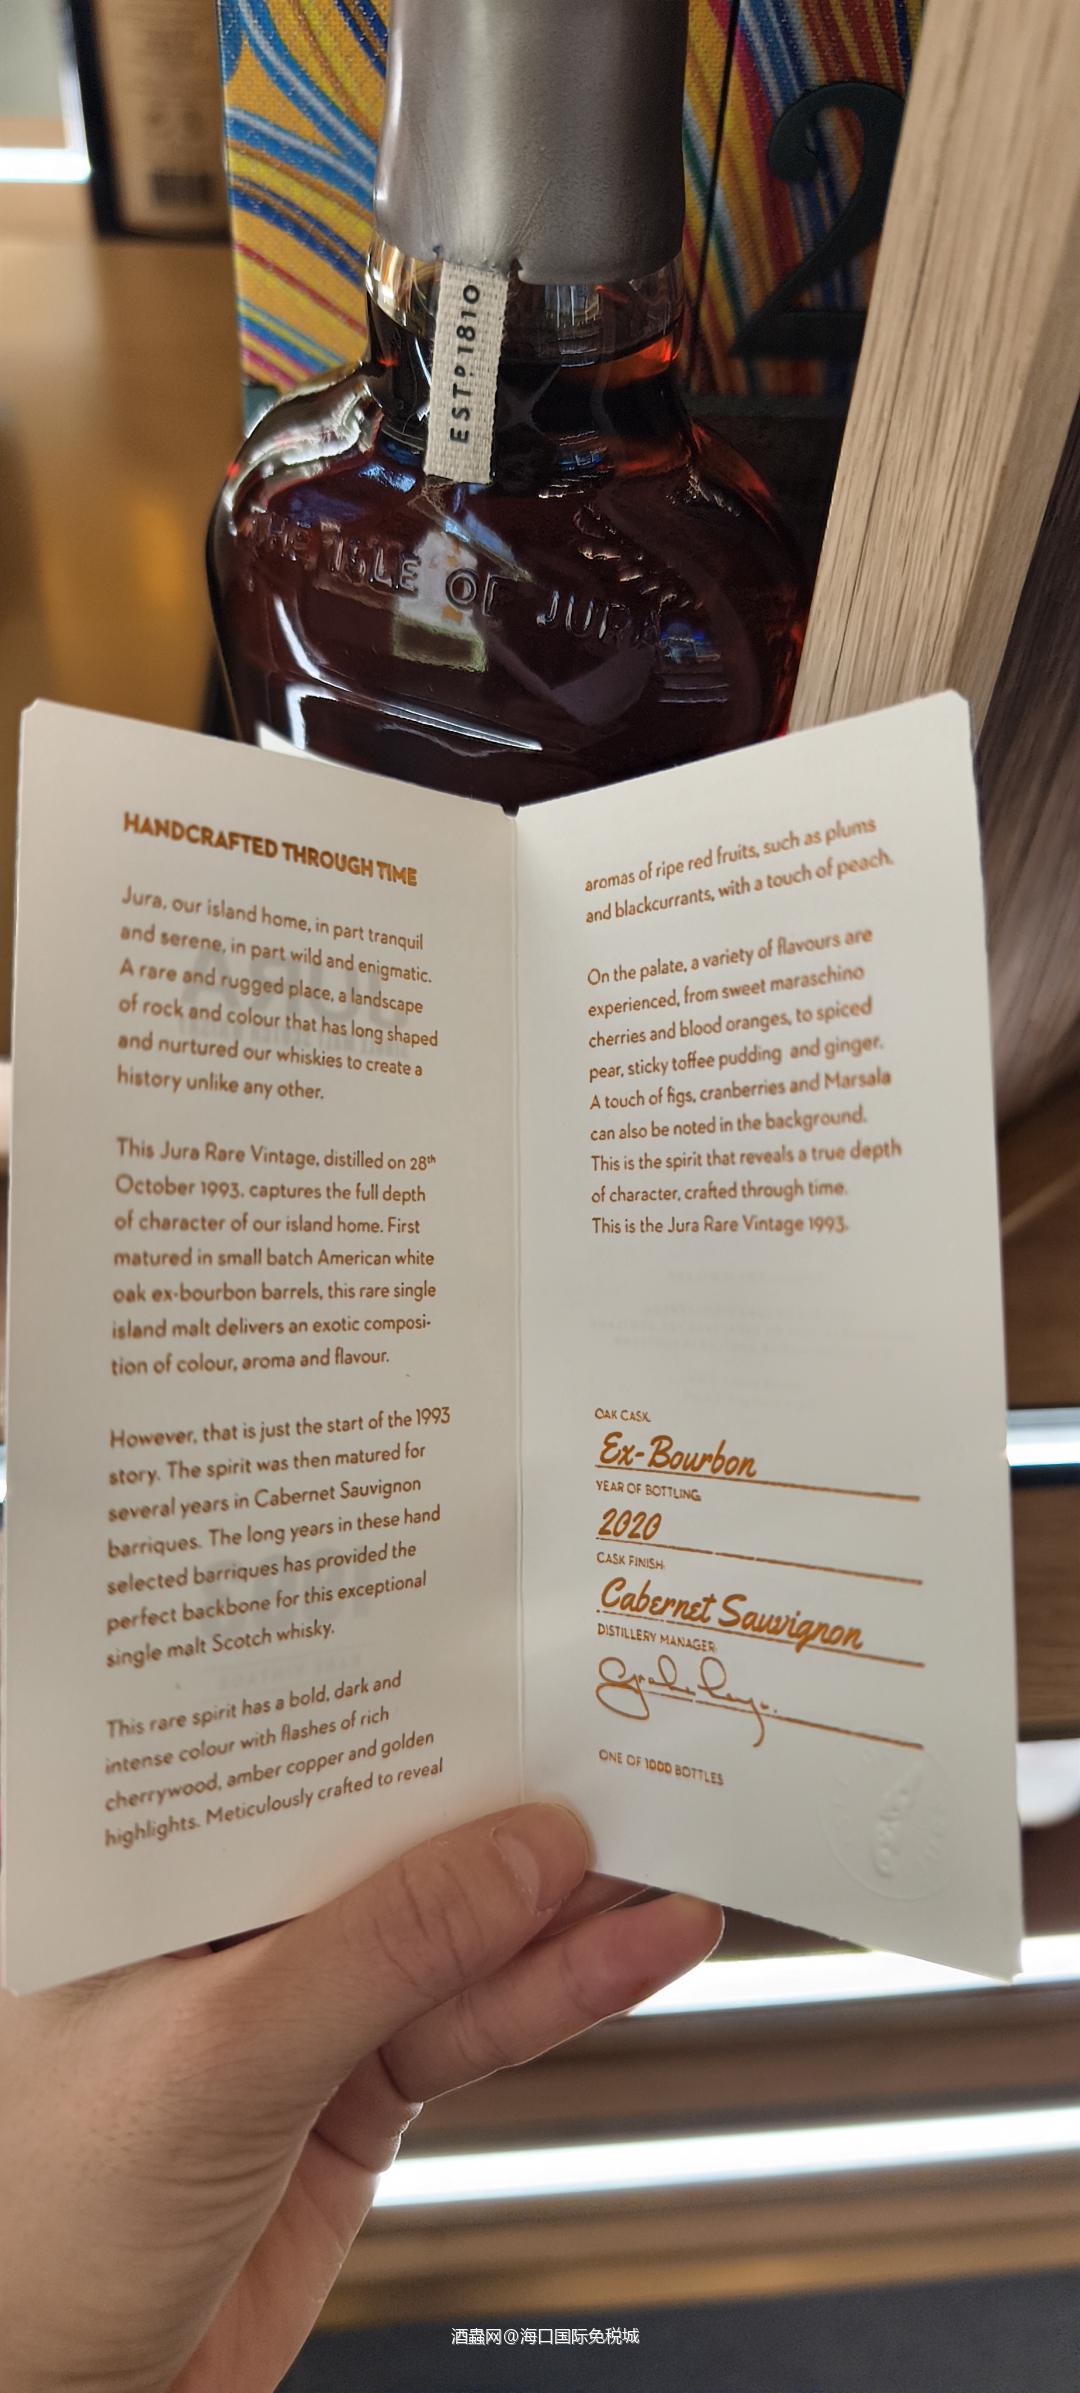 2
ESTD 1810
THE ISLE OF JURA
HANDCRAFTED THROUGH TIME
Jura, our island home, in part tranquil
and serene, in part wild and enigmatic.
A rare and rugged place, a landscape
of rock and colour that has long shaped
and nurtured our whiskies to create a
history unlike any other.
This Jura Rare Vintage, distilled on 28th
October 1993, captures the full depth
of character of our island home. First
matured in small batch American white
oak ex-bourbon barrels, this rare single
island malt delivers an exotic composi-
tion of colour, aroma and flavour.
However, that is just the start of the 1993
story. The spirit was then matured for
several years in Cabernet Sauvignon
barriques. The long years in these hand
selected barriques has provided the
perfect backbone for this exceptional
single malt Scotch whisky.
This rare spirit has a bold, dark and
intense colour with flashes of rich
cherrywood, amber copper and golden
highlights. Meticulously crafted to reveal
aromas of ripe red fruits, such as plums
and blackcurrants, with a touch of peach.
On the palate, a variety of flavours are
experienced, from sweet maraschino
cherries and blood oranges, to spiced
pear, sticky toffee pudding and ginger.
A touch of figs, cranberries and Marsala
can also be noted in the background.
This is the spirit that reveals a true depth
of character, crafted through time.
This is the Jura Rare Vintage 1993.
OAK CASK
Ex-Bourbon
YEAR OF BOTTLING
2020
CASK FINISH
Cabernet Sauvignon
DISTILLERY MANAGER
ONE OF 1000 BOTTLES
酒蟲网@海口国际免税城